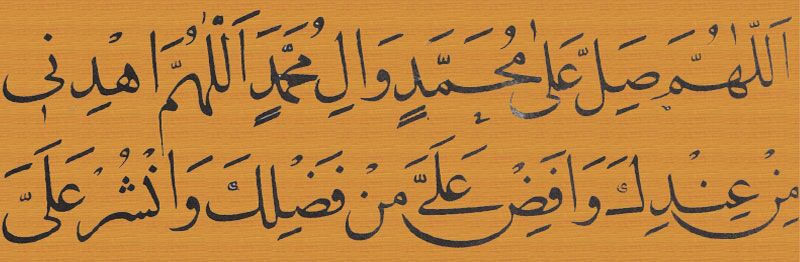 اَللّٰهُمَّ صَلِّ عَلٰى مُحَمَّدٍ وَاٰلِ مُحَمَّدٍ اَللّٰهُمَّ اهْدِنِي
مِنْ عِنْدِكَ وَاَفِضْ عَلَيَّ مِنْ فَضْلِكَ وَانْشُرْ عَلَيَّ